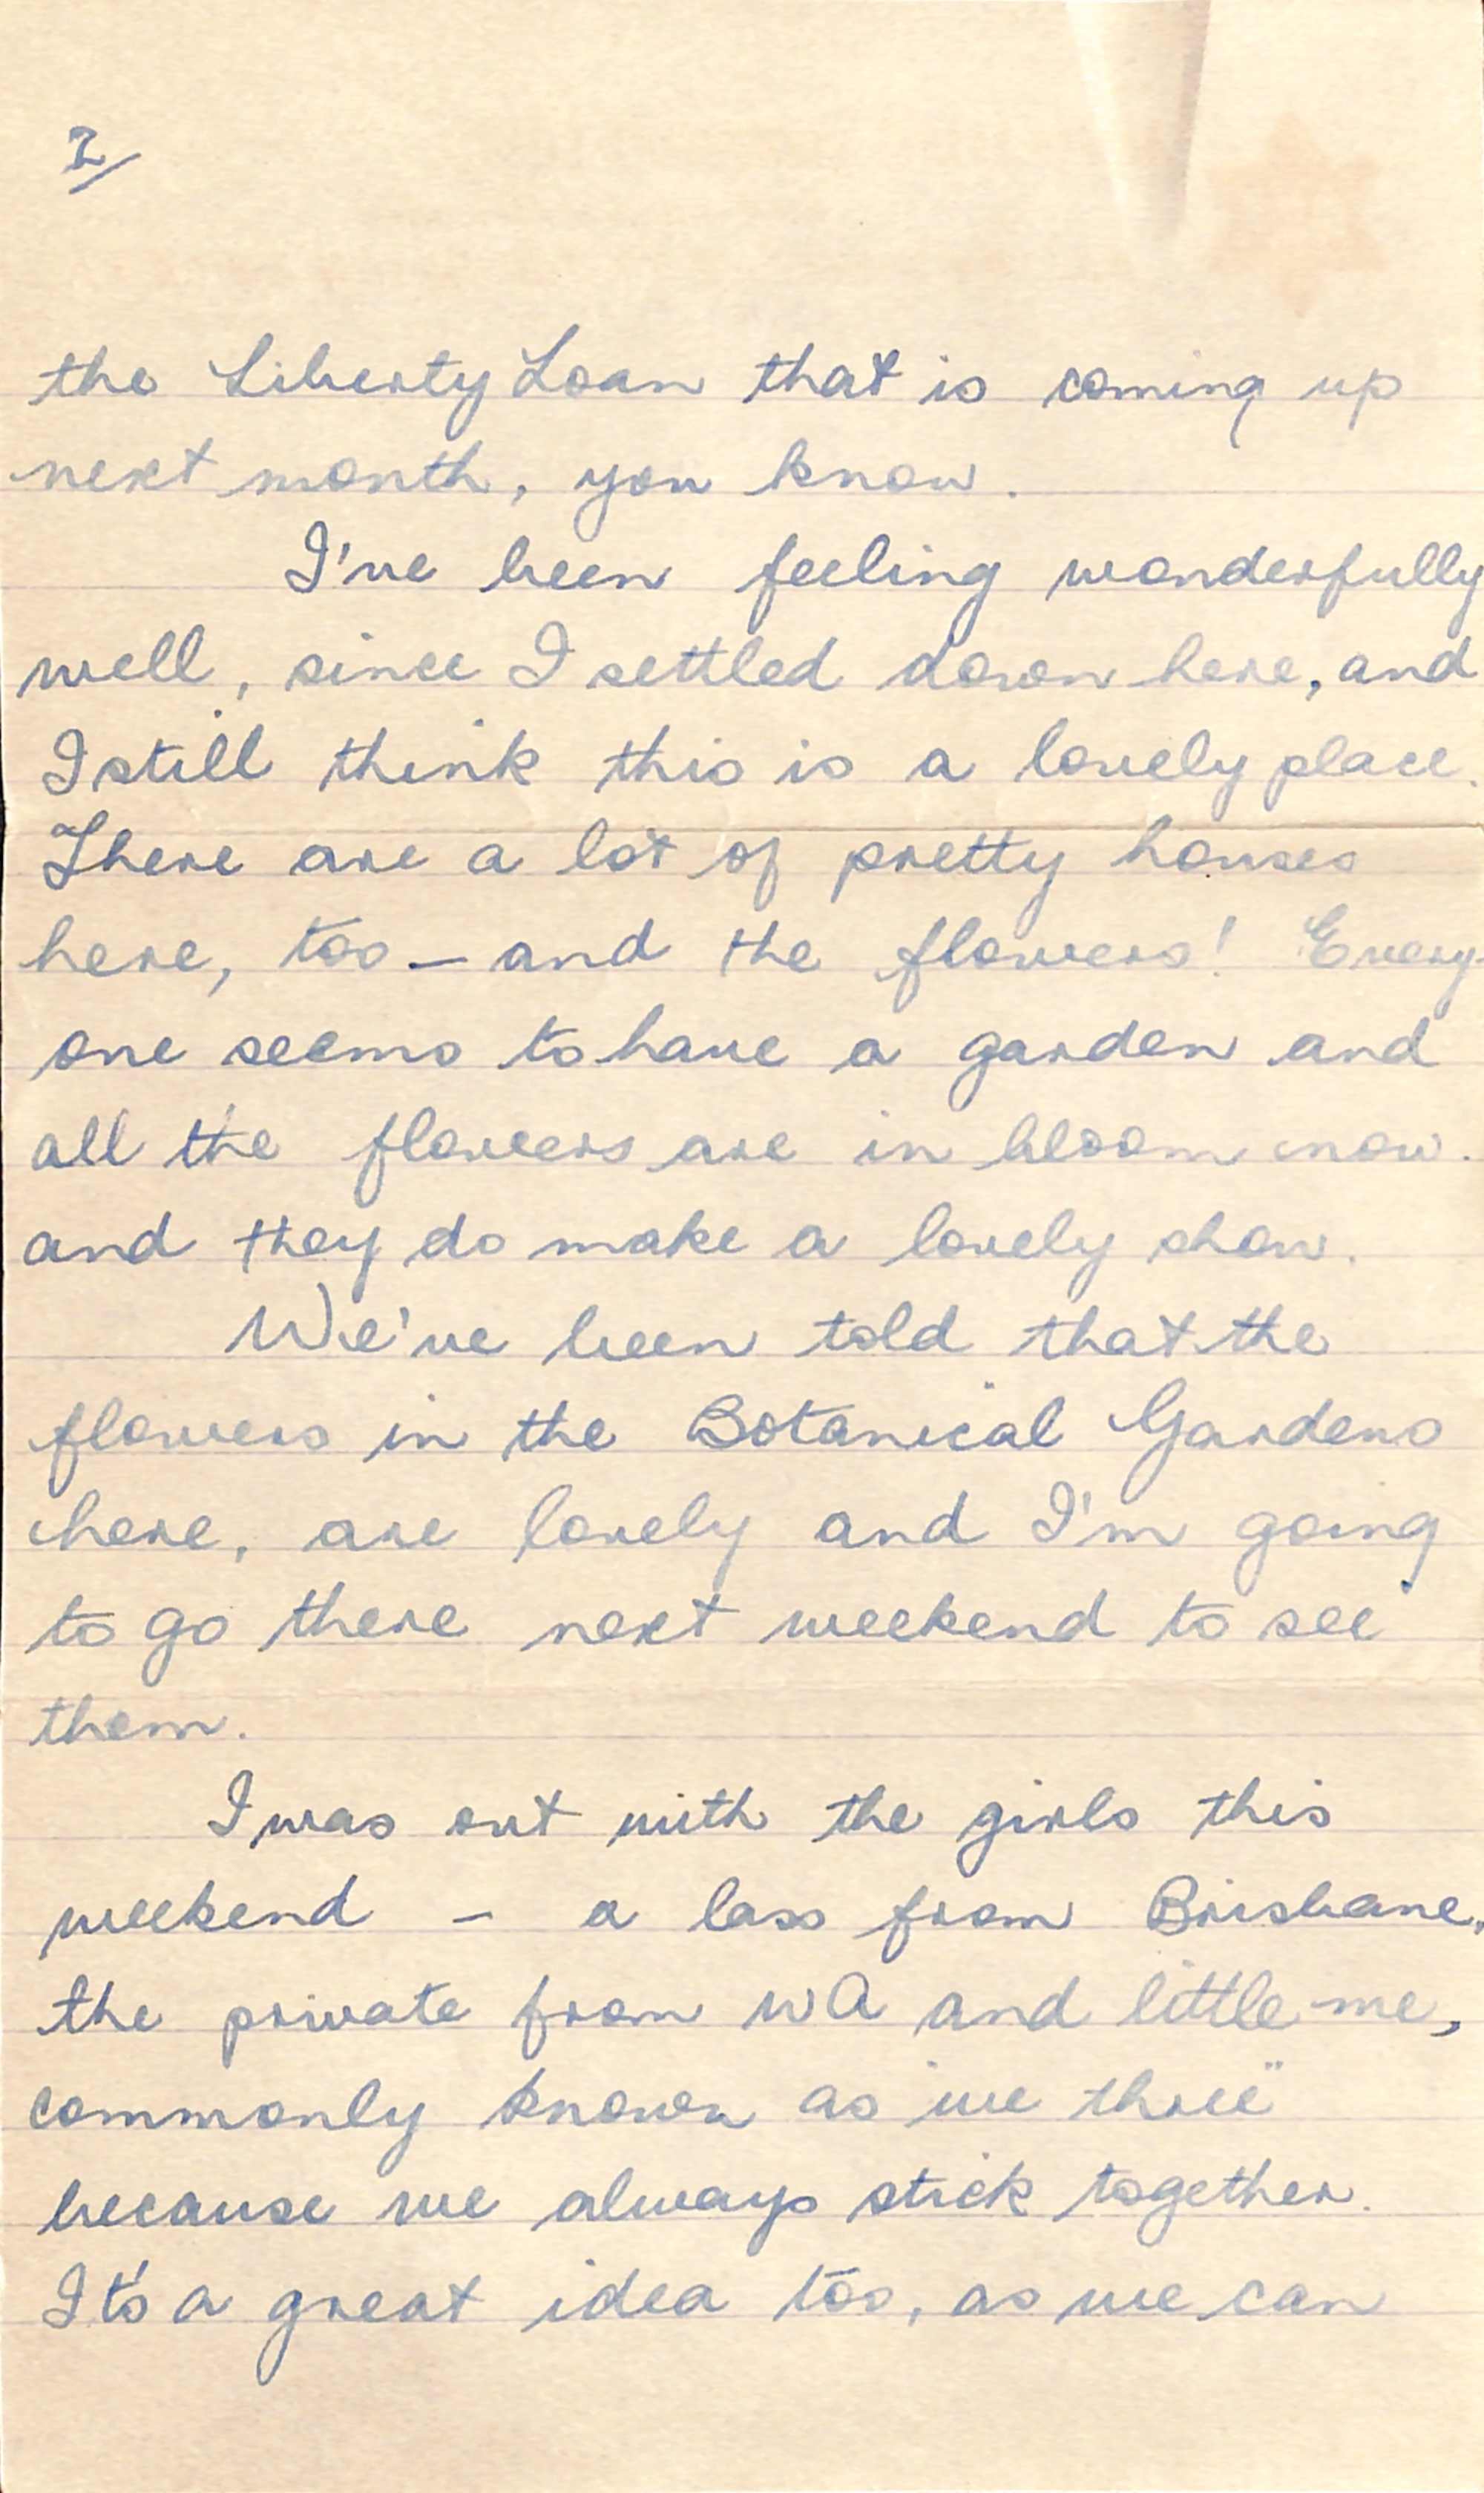 2/
the Liberty Loan that is coming up
next month, you know.
I've been feeling wonderfully
well, since I settled down here, and
I still think this is a lovely place.
There are a lot of pretty houses
here, too – and the flowers! Every-
one seems to have a garden and
all the flowers are in bloom now.
and they do make a lovely show.
We've been told that the
flowers in the Botanical Gardens
here, are lovely and I'm going
to go there next weekend to see
them.
I was out with the girls this
weekend – a lass from Brisbane,
the private from WA and little me,
commonly known as "we three"
because we always stick together.
It's a great idea too, as we can